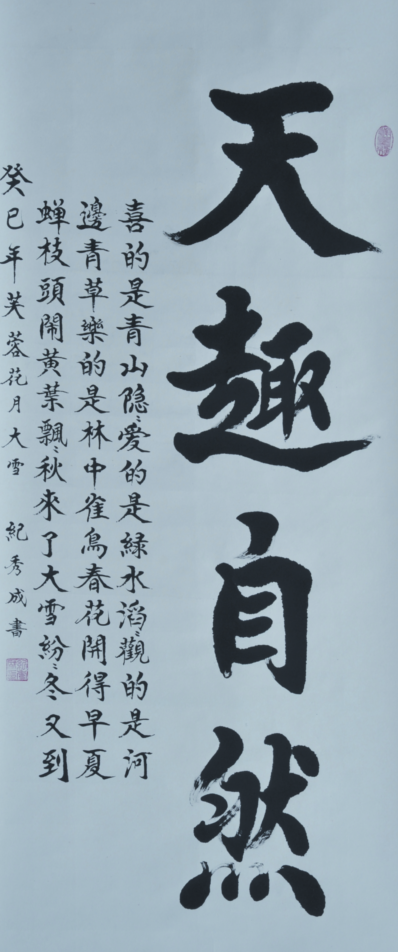 天趣自然
喜的是青山隐〻愛的是綠水滔〻觀的是河
邊青草樂的是林中雀鳥春花開得早夏
蝉枝頭鬧黄葉飄〻秋來了大雪紛〻冬又到
癸巳年芙蓉花月大雪 紀秀成書